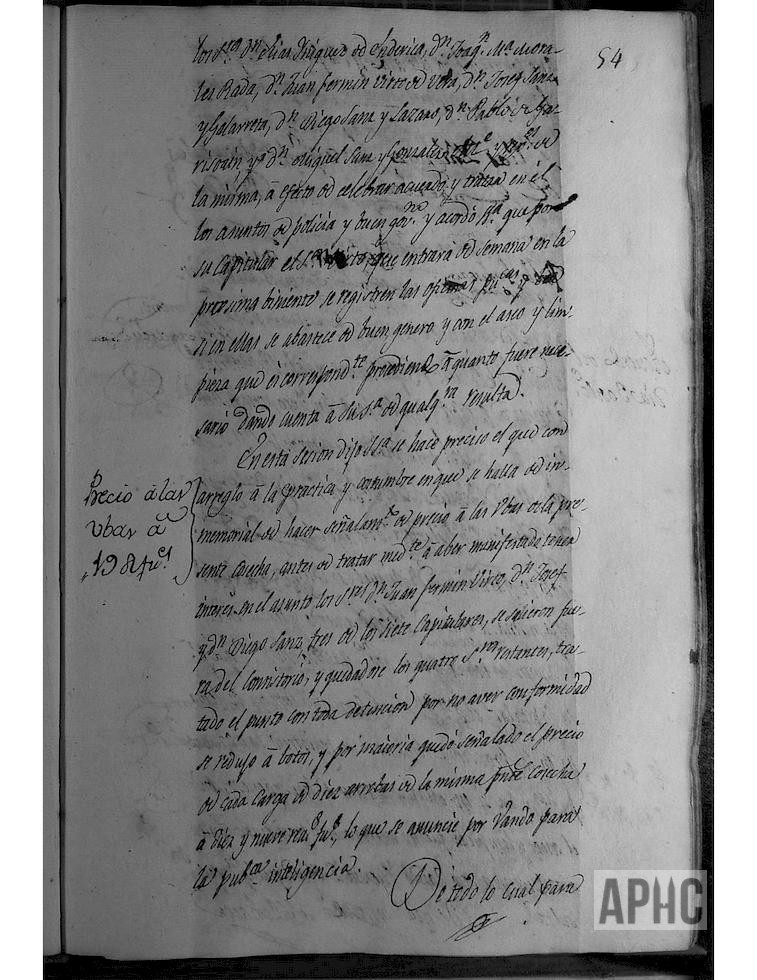 54
los S.res d.n Elias Iñiguez de Enderica, d.n Joaq.n M.a Mora-
les Rada, d.n Juan fermin Virto de Vera, d.n Josef Sanz
y Galarreta, d.n Diego Sanz y Lazaro, d.n Pablo de Ga-
risoain y d.n Miguel Sanz y Gonzalez y de
la misma, â efecto de celebrar acuerdo y tratar en él
los asuntos de policia y buen gov.no y acordó S.ria que por
su Capitular el S.r Virto, que entrará de semana en la
procsima biniente se registren las oficinas p.cas y
si en ellas se abastece de buen genero y con el aseo y lim-
pieza que es correspond.te procediendo â quanto fuere nece-
sario dando cuenta â Su S.ria de qualq.ra resulta.
En esta sesion dijo S.ria se hace preciso el que con
Precio â las
Vbas â
19 r.s fu.es
arreglo â la practica y costumbre en que se halla de in-
memorial de hacer señalam.to de precio â las Vbas de la pre-
sente cosecha, antes de tratar med.te â aber manifestado tener
interes en el asunto los S.res d.n Juan fermin Virto, d.n Josef
y d.n Diego Sanz, tres de los siete Capitulares, se salieron fue-
ra del Consistorio, y quedadose los quatro S.res restantes, tra-
tado el punto con toda detencion por no aver conformidad
se redujo â botos, y por maioria quedó señalado el precio
de cada carga de diez arrobas de la misma pnte Cosecha
â diez y nueve rea.s fu.s lo que se anuncie por Vando para
la pub.ca inteligencia.
De todo lo cual para
APHC